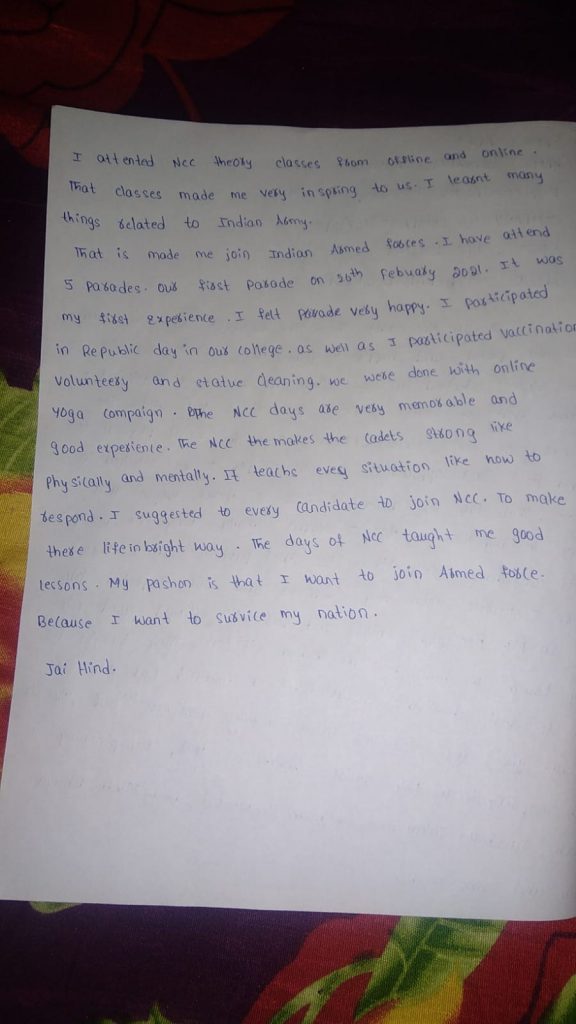 I attented NCC theory classes from offline and online.
That classes made me very inspring to us. I learnt many
things related to Indian Army.
That is made me join Indian Armed forces. I have attend
5 parades. our first parade on 26th Febuary 2021. It was
my first experience. I felt parade very happy. I participated
in Republic day in our college. as well as I participated vaccination
volunteery and statue cleaning. we were done with online
yoga campaign. The NCC days are very memorable and
good experience. The NCC the makes the cadets strong like
physically and mentally. It teachs every situation like how to
respond. I suggested to every candidate to join NCC. To make
there life in bright way. The days of NCC taught me good
lessons. My pashon is that I want to join Armed force.
Because I want to survice my nation.
Jai Hind.